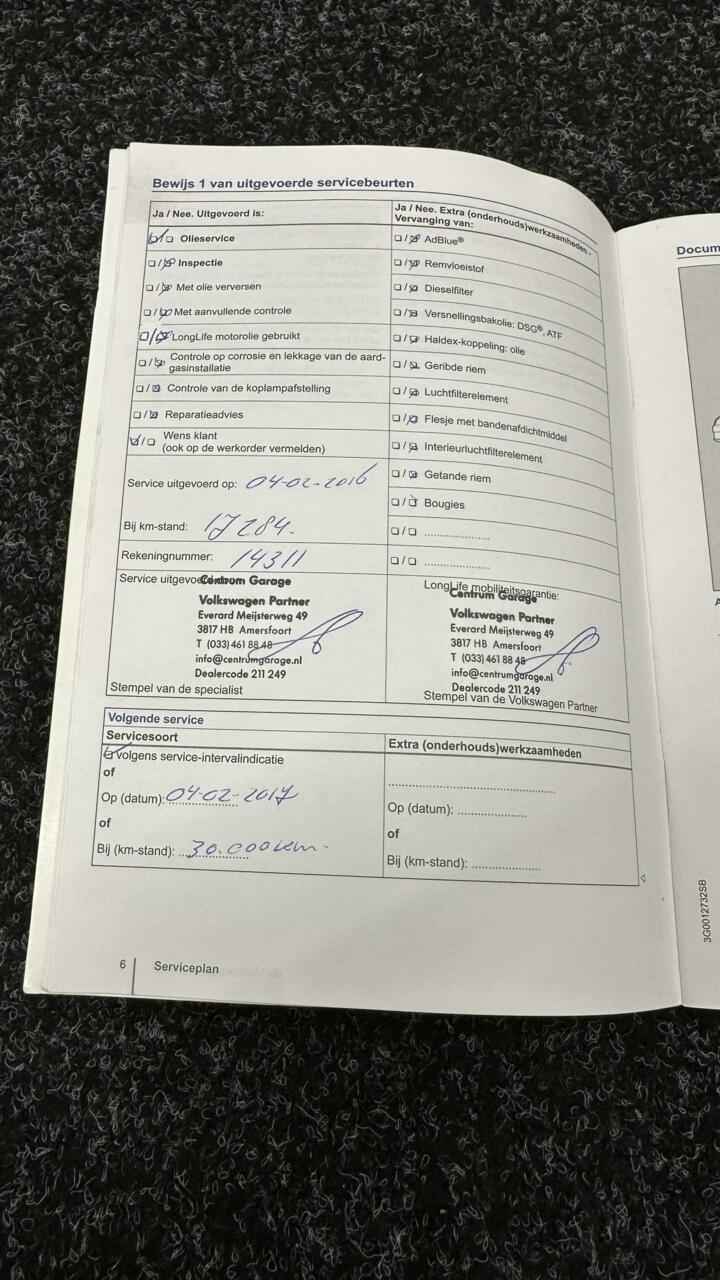 Bewijs 1 van uitgevoerde servicebeurten
Ja / Nee. Uitgevoerd is:
Olieservice
Inspectie
Met olie verversen
Met aanvullende controle
LongLife motorolie gebruikt
Controle op corrosie en lekkage van de aard-
gasinstallatie
Controle van de koplampafstelling
Reparatieadvies
Wens klant
(ook op de werkorder vermelden)
Service uitgevoerd op: 04-02-2016
Bij km-stand: 17284.
Rekeningnummer: 14311
Ja / Nee. Extra (onderhouds)werkzaamheden -
Vervanging van:
AdBlue®
Remvloeistof
Dieselfilter
Versnellingsbakolie: DSG®, ATF
Haldex-koppeling: olie
Geribde riem
Luchtfilterelement
Flesje met bandenafdichtmiddel
Interieurluchtfilterelement
Getande riem
Bougies
Service uitgevoerd door:
Centrum Garage
Volkswagen Partner
Everard Meijsterweg 49
3817 HB Amersfoort
T (033) 461 88 48
info@centrumgarage.nl
Dealercode 211 249
Stempel van de specialist
LongLife mobiliteitsgarantie:
Centrum Garage
Volkswagen Partner
Everard Meijsterweg 49
3817 HB Amersfoort
T (033) 461 88 48
info@centrumgarage.nl
Dealercode 211 249
Stempel van de Volkswagen Partner
Volgende service
Servicesoort
volgens service-intervalindicatie
of
Op (datum): 04-02-2017
of
Bij (km-stand): 30.000 km.
Extra (onderhouds)werkzaamheden
Op (datum):
of
Bij (km-stand):
6 Serviceplan
Docum
3G0012732SB